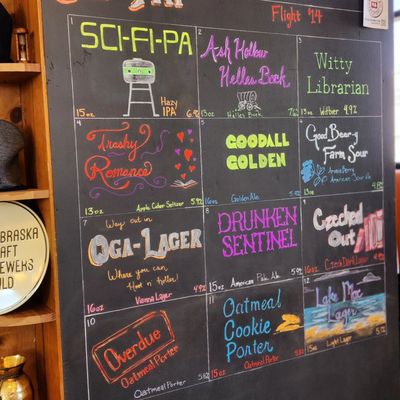 Flight $14
1
SCI-FI-PA
15oz
Hazy
IPA
2
Ash Hollow
Helles Bock
Helles Bock
3
Witty
Librarian
13oz Witbier 4.9%
4
Trashy
Romance
13oz Apple Cider Seltzer 5.9%
5
GOODALL
GOLDEN
Golden Ale
6
Good Beer-y
Farm Sour
American Sour Ale
13oz
4.8%
7
Way out in
OGA-LAGER
Where you can
16oz Vienna Lager
8
DRUNKEN
SENTINEL
15oz American Pale Ale 5.9%
9
Czeched
Out
16oz Czech Dark Lager 4.9%
10
Overdue
Oatmeal Porter
Oatmeal Porter
11
Oatmeal
Cookie
Porter
15oz Oatmeal Porter
12
Lake Mac
Lager
15oz Light Lager
BRASKA
AFT
EWERS
ILD